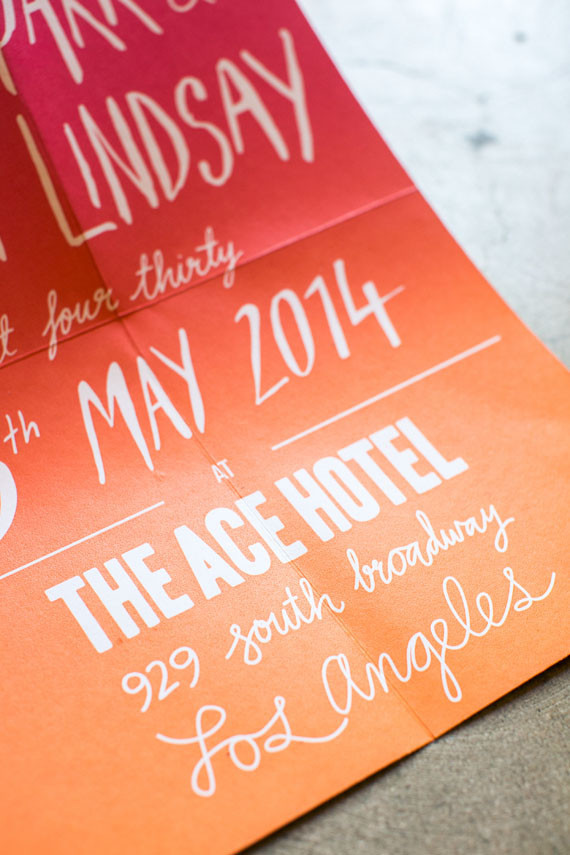 LINDSAY
four thirty
th MAY 2014
AT
THE ACE HOTEL
929 south broadway
Los Angeles